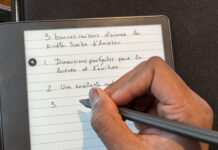 3 bonnes raisons d'aimer la
Kindle Scribe d'Amazon
1. Dimensions parfaites pour la
lecture et l'écriture
2. Une excellente
3.